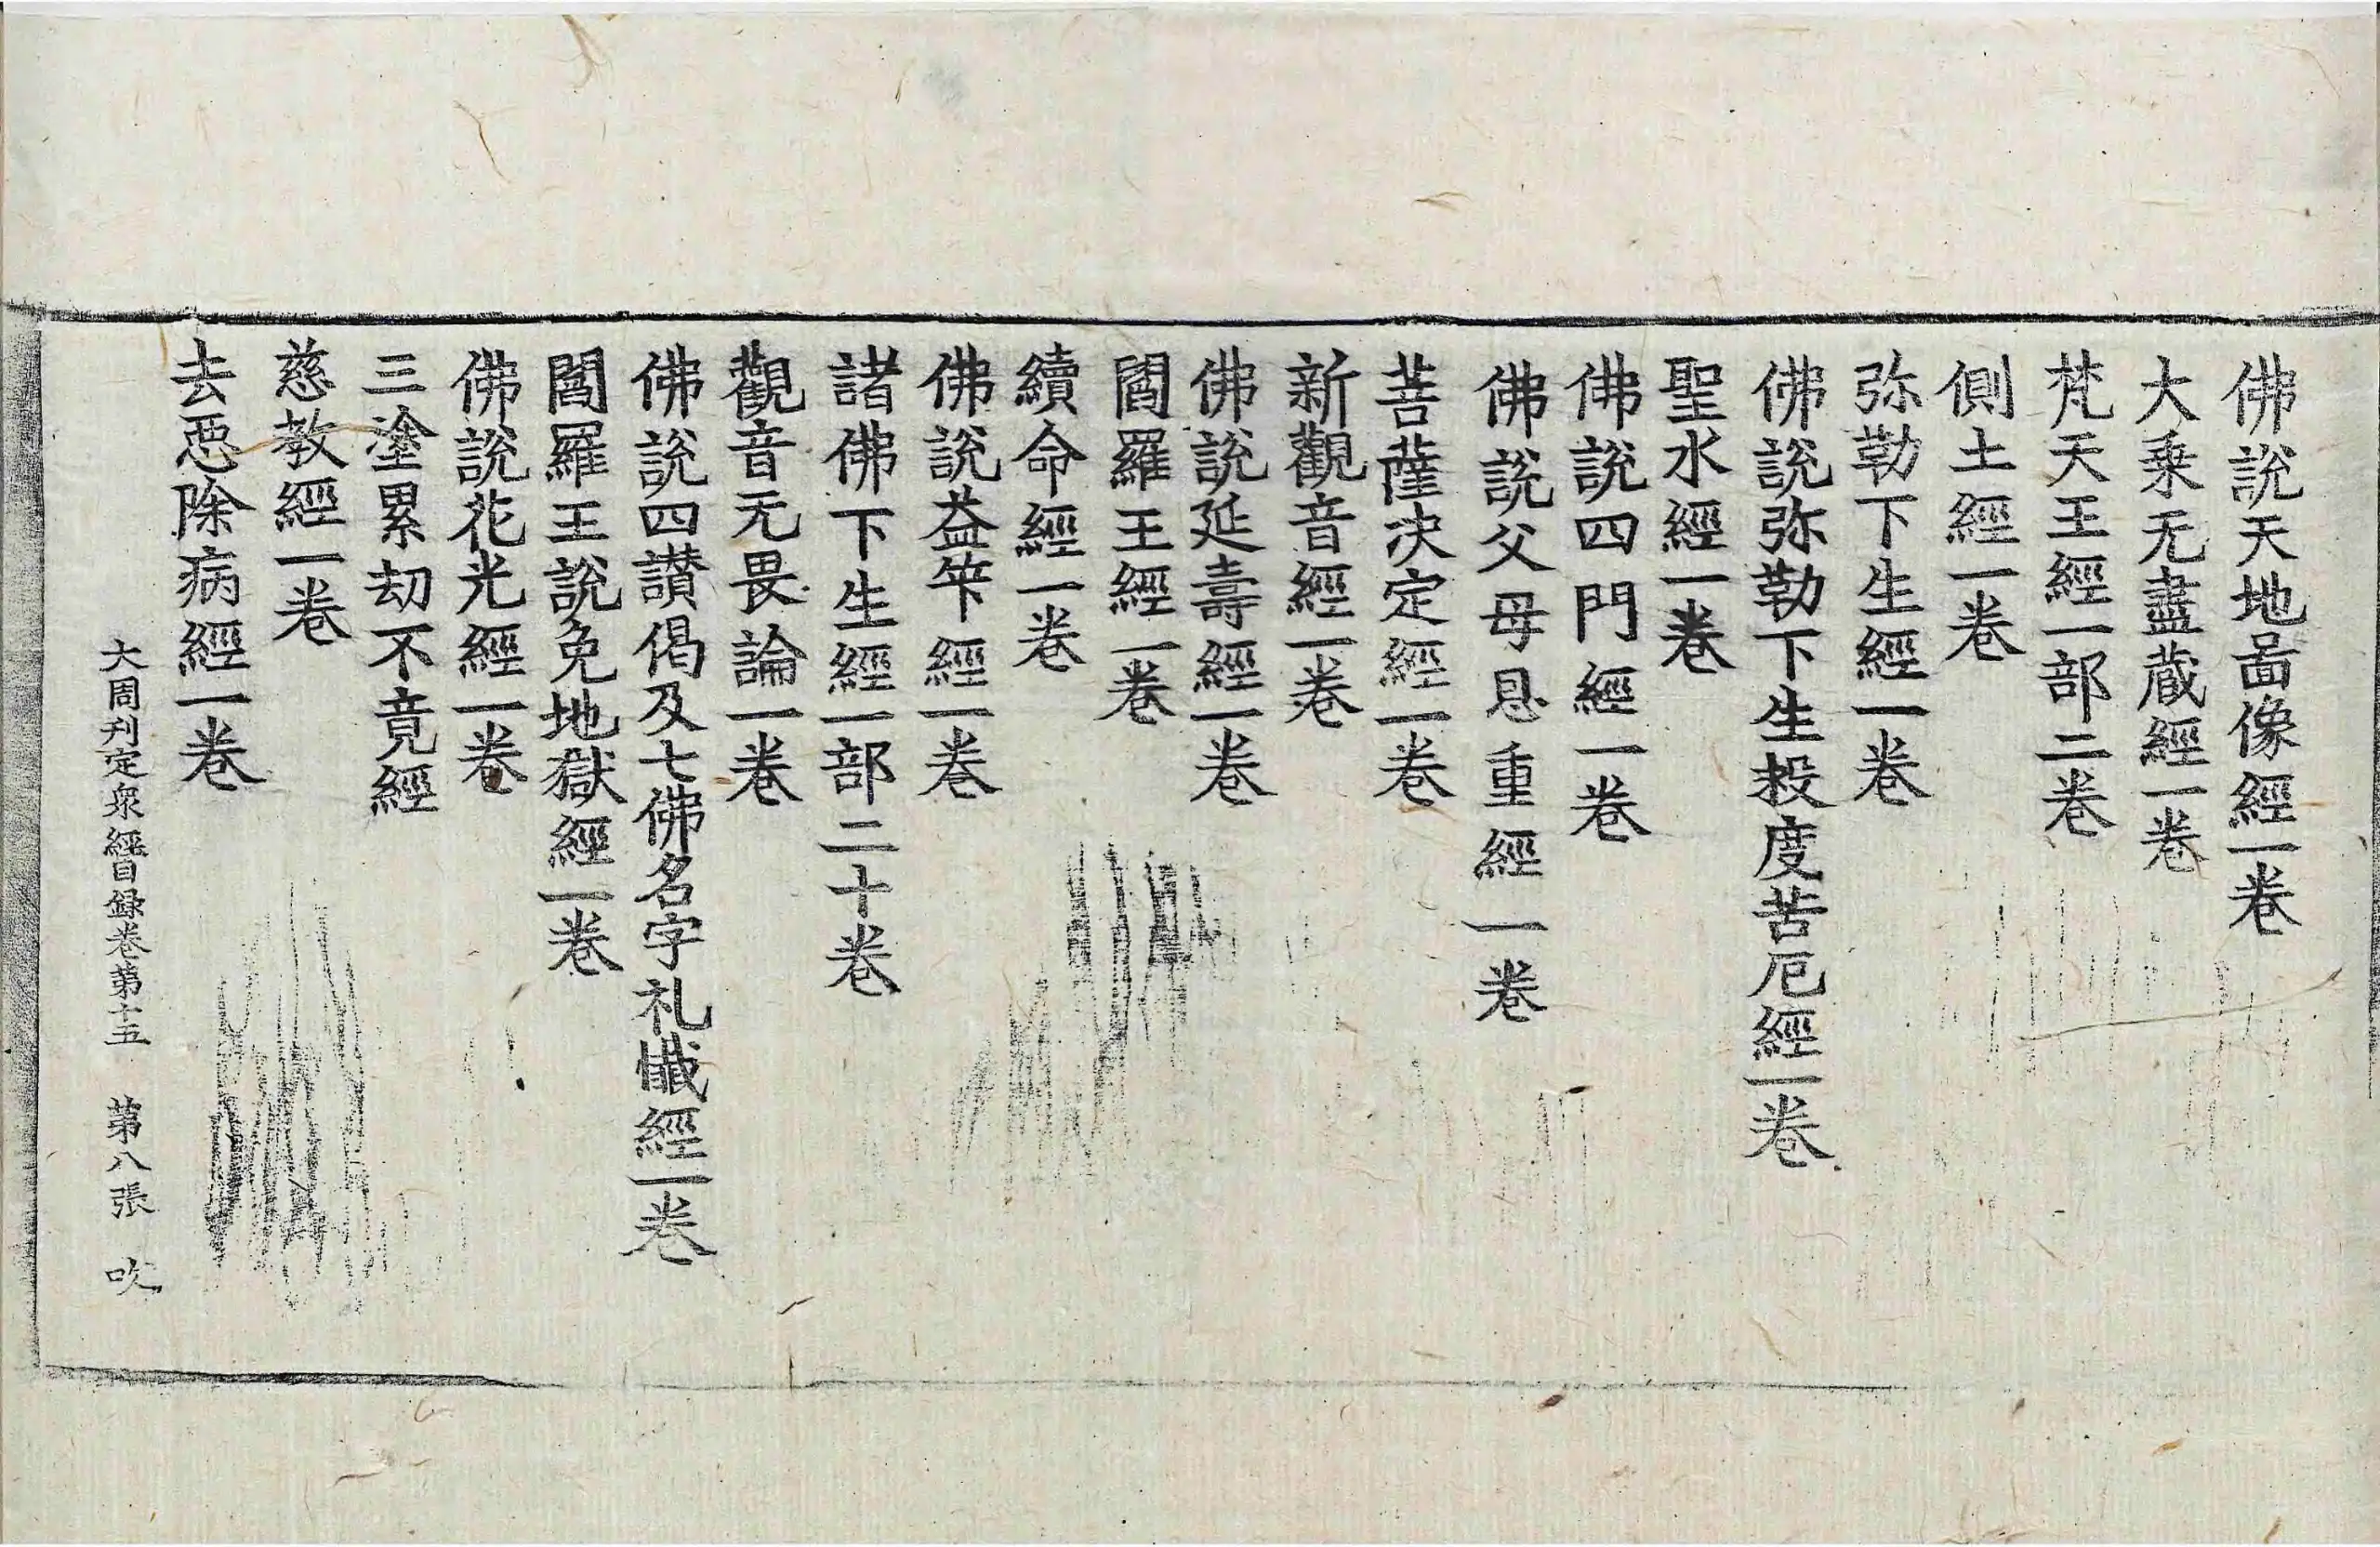 佛說天地啚像經一卷
大乗无盡蔵經一卷
梵天王經一部二卷
側土經一卷
弥勒下生經一卷
佛說弥勒下生救度苦厄經一卷
聖水經一卷
佛說四門經一卷
佛說父母恩重經一卷
菩薩决定經一卷
新觀音經一卷
佛說延壽經一卷
閻羅王經一卷
續命經一卷
佛說益筭經一卷
諸佛下生經一部二十卷
觀音无畏論一卷
佛說四讃偈及七佛名字礼懺經一卷
閻羅王說免地獄經一卷
佛說花光經一卷
三塗累劫不竟經
慈教經一卷
去惡除病經一卷
大周刋定衆經目録卷第十五 第八張 吹